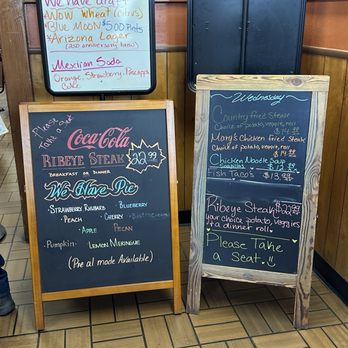 We have draft
Wow Wheat
Blue Moon $5.00 Pints
Arizona Lager
Mexican Soda
Orange, Strawberry, Pineapple
Coke
Please
Take a
Seat
Coca-Cola
Ribeye Steak 22.99
Breakfast or Dinner
We Have Pie
Strawberry Rhubarb
Blueberry
Peach
Cherry
Apple
Pecan
Pumpkin
Lemon Meringue
(Pie al mode Available)
Wednesday
Country Fried Steak
Choice of potato, veggie, roll
$14.99
Mary's Chicken Fried Steak
choice of potato, veggie, roll
$14
Chicken Noodle Soup
$13
Fish Taco's $13.99
Ribeye Steak $22.99
your choice potato, veggies
+ a dinner roll
Please Take
a Seat.